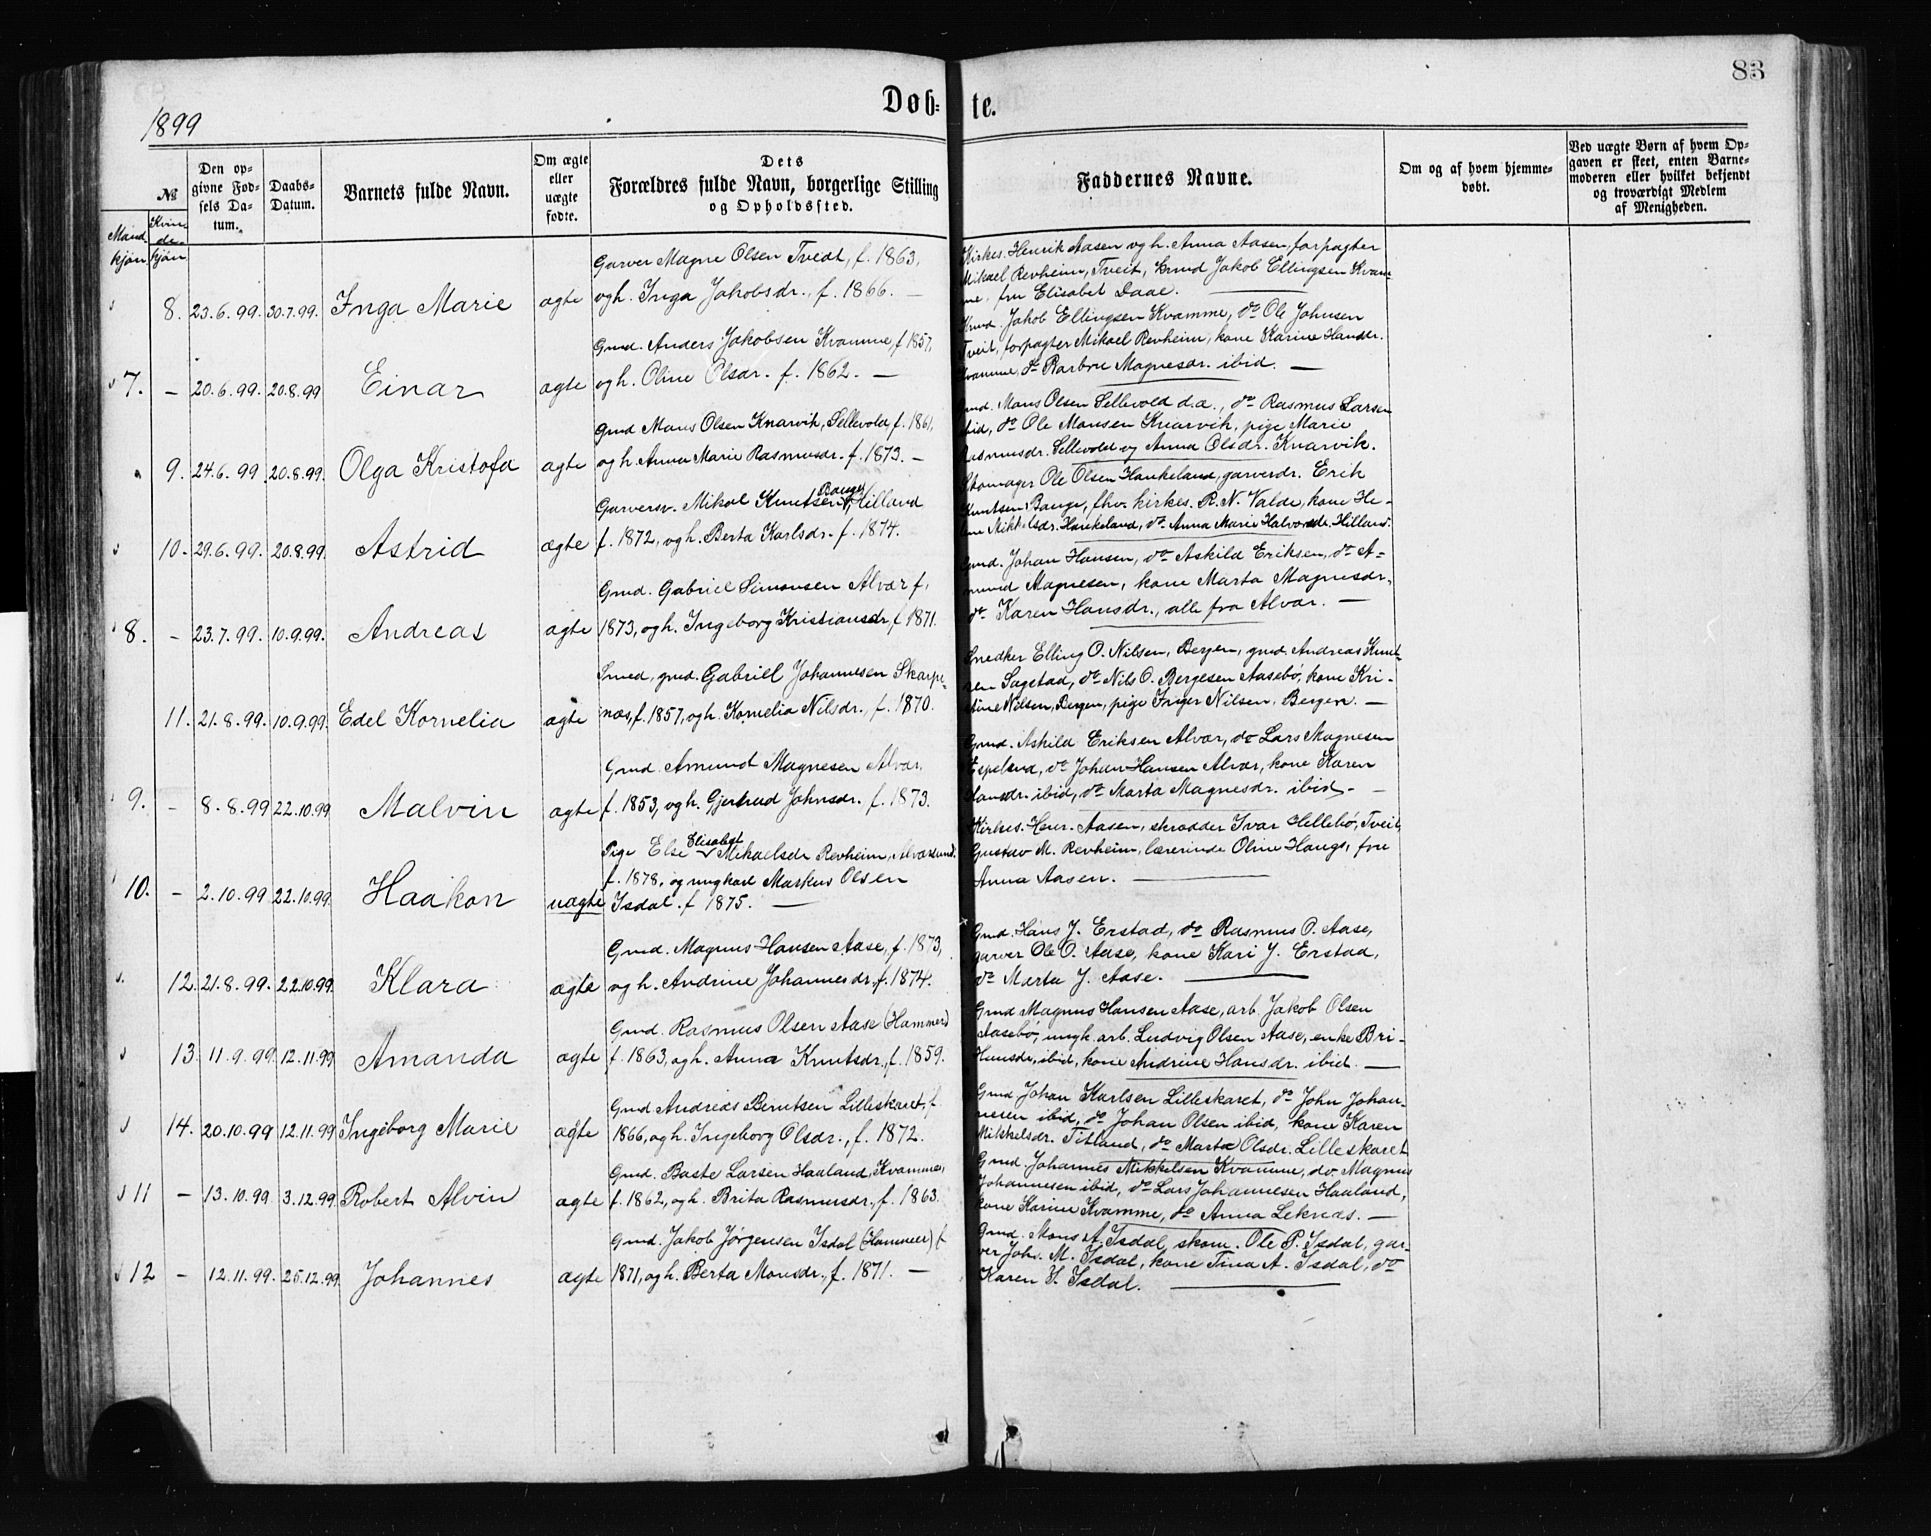 83
Døb- te.
1899
№
Mandkjøn.
Kvindekjøn.
Den opgivne Fødsels Datum.
Daabs-Datum.
Barnets fulde Navn.
Om ægte eller uægte fødte.
Dets Forældres fulde Navn, borgerlige Stilling og Opholdssted.
Faddernes Navne.
Om og af hvem hjemmedøbt.
Ved uægte Børn af hvem Opgaven er skeet, enten Barnemoderen eller hvilket bekjendt og troværdigt Medlem af Menigheden.
8. 23.6.99. 30.7.99. Inga Marie ægte
Garver Magne Olsen Tveit, f. 1863,
og h. Inga Jakobsdr., f. 1866. —
Kirkes. Henrik Aasen og h. Anna Aasen, forpagter
Mikael Revheim, Tveit, Gmd Jakob Ellingsen Kvam-
me, fru Elisabet Daae.
7. — 20.6.99. 20.8.99 Einar ægte
Gmd. Anders Jakobsen Kvamme, f. 1857,
og h. Oline Olsdr. f. 1862. —
Gmd. Jakob Ellingsen Kvamme, do Ole Johnsen
Tveit, forpagter Mikael Revheim, kone Karine Hansdr.
Kvamme, do Barbro Magnesdr. ibid. —
9. 24.6.99 20.8.99. Olga Kristofa ægte
Gmd Mons Olsen Knarvik, Sellevold, f. 1861,
og h. Anna Marie Rasmusdr. f. 1873. —
Gmd. Mons Olsen Sellevold d.a., do Rasmus Larsen
ibid, do Ole Monsen Knarvik, pige Marie
Rasmusdr. Sellevold og Anna Olsdr. Knarvik.
10. 29.6.99. 20.8.99. Astrid ægte
Garversv. Mikal Knutsen Bauge, Hilland
f. 1872, og h. Berta Karlsdr. f. 1874.
Skomager Ole Olsen Haukeland, garverdr. Erik
Knutsen Bauge, fhv. kirkes. R. N. Valde, kone He-
lene Mikkelsdr. Haukeland, do Anna Marie Halvorsdr. Hilland.
8. — 23.7.99. 10.9.99. Andreas ægte
Gmd. Gabriel Simonsen Alvær f.
1873, og h. Ingeborg Kristiansdr, f. 1871.
Gmd. Johan Hansen, do Askild Eriksen, do A-
mund Magnesen, kone Marta Magnesdr.,
do Karen Hansdr., alle fra Alvær. —
11. 21.8.99. 10.9.99. Edel Kornelia ægte
Smed, gmd. Gabriel Johannesen Skarpe-
næs, f. 1857, og h. Kornelia Nilsdr., f. 1870.
Snedker Elling O. Nilsen, Bergen, gmd Andreas Knut-
sen Sagstad, do Nils O. Bergesen Aasebø, kone Kri-
stine Nilsen, Bergen, pige Inger Nilsen, Bergen. —
9. — 8.8.99 22.10.99 Malvin ægte
Gmd. Amund Magnesen Alvær,
f. 1853, og h. Gjertrud Johnsdr. f. 1873.
Gmd. Askild Eriksen Alvær, do Lars Magnesen
Espeland, do Johan Hansen Alvær, kone Karen
Hansdr. ibid, do Marta Magnesdr. ibid. —
10. — 2.10.99 22.10.99. Haakon uægte
Pige Else Elisabet Mikaelsdr Revheim, Alværsund.
f. 1878, og ungkarl Markus Olsen
Isdal. f 1875. —
Kirkes. Henr. Aasen, skrædder Ivar Hellebø, Tveit,
Gustav M. Revheim, lærerinde Oline Haugs, fru
Anna Aasen. —
12. 21.8.99. 22.10.99. Klara ægte
Gmd. Magnus Hansen Aase, f. 1873,
og h. Andrine Johannesdr, f. 1874.
Gmd. Hans J. Erstad, do Rasmus O. Aase,
garver Ole O. Aase, kone Kari J. Erstad,
do Marta J. Aase. —
13. 11.9.99. 12.11.99 Amanda ægte
Gmd. Rasmus Olsen Aase (Hammer)
f. 1863, og h. Anna Knutsdr., f. 1859.
Gmd Magnus Hansen Aase, arb. Jakob Olsen
Aasebø, ungk. arb. Ludvig Olsen Aase, enke Bri-
Hansdr, ibid, kone Andrine Hansdr. ibid. —
14. 20.10.99 12.11.99 Ingeborg Marie ægte
Gmd Andreas Berntsen Lilleskaret, f.
1866, og h. Ingeborg Olsdr., f. 1872.
Gmd Johan Karlsen Lilleskaret, do John Johan-
nesen ibid, do Johan Olsen ibid, kone Karen
Mikkelsdr. Titland, do Marta Olsdr. Lilleskaret
11 — 13.10.99 3.12.99 Robert Alvin ægte
Gmd. Baste Larsen Haaland, Kvamme,
f. 1862, og h. Brita Rasmusdr., f. 1863.
Gmd. Johannes Mikkelsen Kvamme, do. Magnus
Johannesen ibid, do Lars Johannesen Haaland,
kone Karine Kvamme, do Anna Leknæs. —
12 — 12.11.99. 25.12.99. Johannes ægte
Gmd. Jakob Jørgensen Isdal (Hammer) f.
1871, og h. Berta Monsdr., f. 1871. —
Gmd. Mons A. Isdal, skom. Ole P. Isdal, gar-
ver Johs. M. Isdal, kone Tina A. Isdal, do
Karen I. Isdal. —